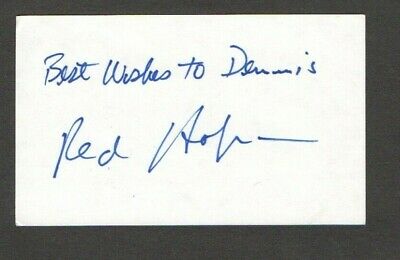 Best Wishes to Dennis
Red